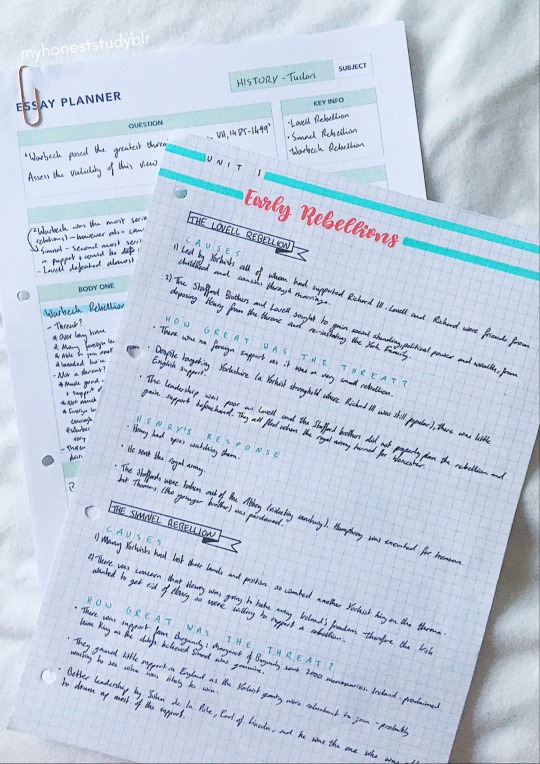 myhoneststudyblr
ESSAY PLANNER
HISTORY - Tudors
SUBJECT
QUESTION
"Warbeck posed the greatest
VII, 1485-1499"
Assess the validity of this view
KEY INFO
• Lovell Rebellion
• Simnel Rebellion
• Warbeck Rebellion
Warbeck was the most
relations) - however also
Simnel - second most
- Lovell defeated almost
BODY ONE
Warbeck Rebellion
- Threat?
* Over long time
UNIT 1
Early Rebellions
THE LOVELL REBELLION
CAUSES
1) Led by Yorkists all of whom had supported Richard III - Lovell and Richard were friends from
childhood and cousins through marriage.
2) The Stafford Brothers and Lovell sought to gain social standing, political power and wealth, from
deposing Henry from the throne and re-instating the York Family.
HOW GREAT WAS THE THREAT?
• There was no foreign support as it was a very small rebellion.
• Despite targeting Yorkshire (a Yorkist stronghold where Richard III was still popular), there was little
English support.
• The leadership was poor as Lovell and the Stafford brothers did not properly plan the rebellion and
gain support beforehand. They all fled when the royal army turned for Worcester.
HENRY'S RESPONSE
• Henry had spies watching them.
• He sent the royal army.
• The Staffords were taken out of the Abbey (violating sanctuary). Humphrey was executed for treason
but Thomas (the younger brother) was pardoned.
THE SIMNEL REBELLION
CAUSES
1) Many Yorkists had lost their lands and position so wanted another Yorkist king on the throne.
2) There was concern that Henry was going to take away Ireland's freedom - therefore the Irish
wanted to get rid of Henry so were willing to support a rebellion.
HOW GREAT WAS THE THREAT?
• There was support from Burgundy: Margaret of Burgundy sent 2000 mercenaries. Ireland proclaimed
him King as the believed Simnel was genuine.
• They gained little support in England as the Yorkist gentry were reluctant to join - probably
waiting to see who was likely to win.
• Better leadership by John de la Pole, Earl of Lincoln, and he was the one who was
to drum up most of the support.